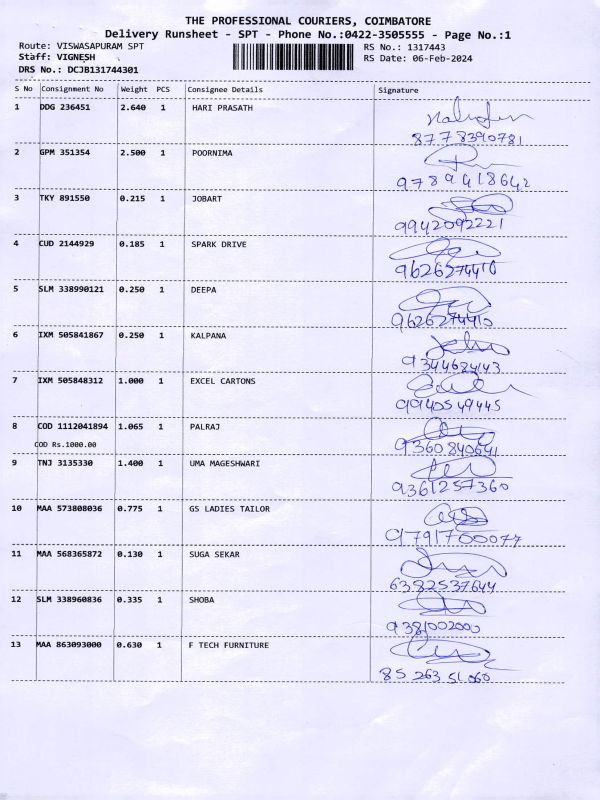 THE PROFESSIONAL COURIERS, COIMBATORE
Delivery Runsheet - SPT - Phone No.:0422-3505555 - Page No.:1
Route: VISWASAPURAM SPT RS No.: 1317443
Staff: VIGNESH RS Date: 06-Feb-2024
DRS No.: DCJB131744301
S No Consignment No Weight PCS Consignee Details Signature
1 DDG 236451 2.640 1 HARI PRASATH
8778390781
2 GPM 351354 2.500 1 POORNIMA
9789418642
3 TKY 891550 0.215 1 JOBART
9942092221
4 CUD 2144929 0.185 1 SPARK DRIVE
9626274410
5 SLM 338990121 0.250 1 DEEPA
9626274410
6 IXM 505841867 0.250 1 KALPANA
9344684143
7 IXM 505848312 1.000 1 EXCEL CARTONS
9940549445
8 COD 1112041894 1.065 1 PALRAJ
COD Rs.1000.00 9360840641
9 TNJ 3135330 1.400 1 UMA MAGESHWARI
9361257360
10 MAA 573808036 0.775 1 GS LADIES TAILOR
9791700077
11 MAA 568365872 0.130 1 SUGA SEKAR
6382537644
12 SLM 338960836 0.335 1 SHOBA
9381002000
13 MAA 863093000 0.630 1 F TECH FURNITURE
85 263 51 060